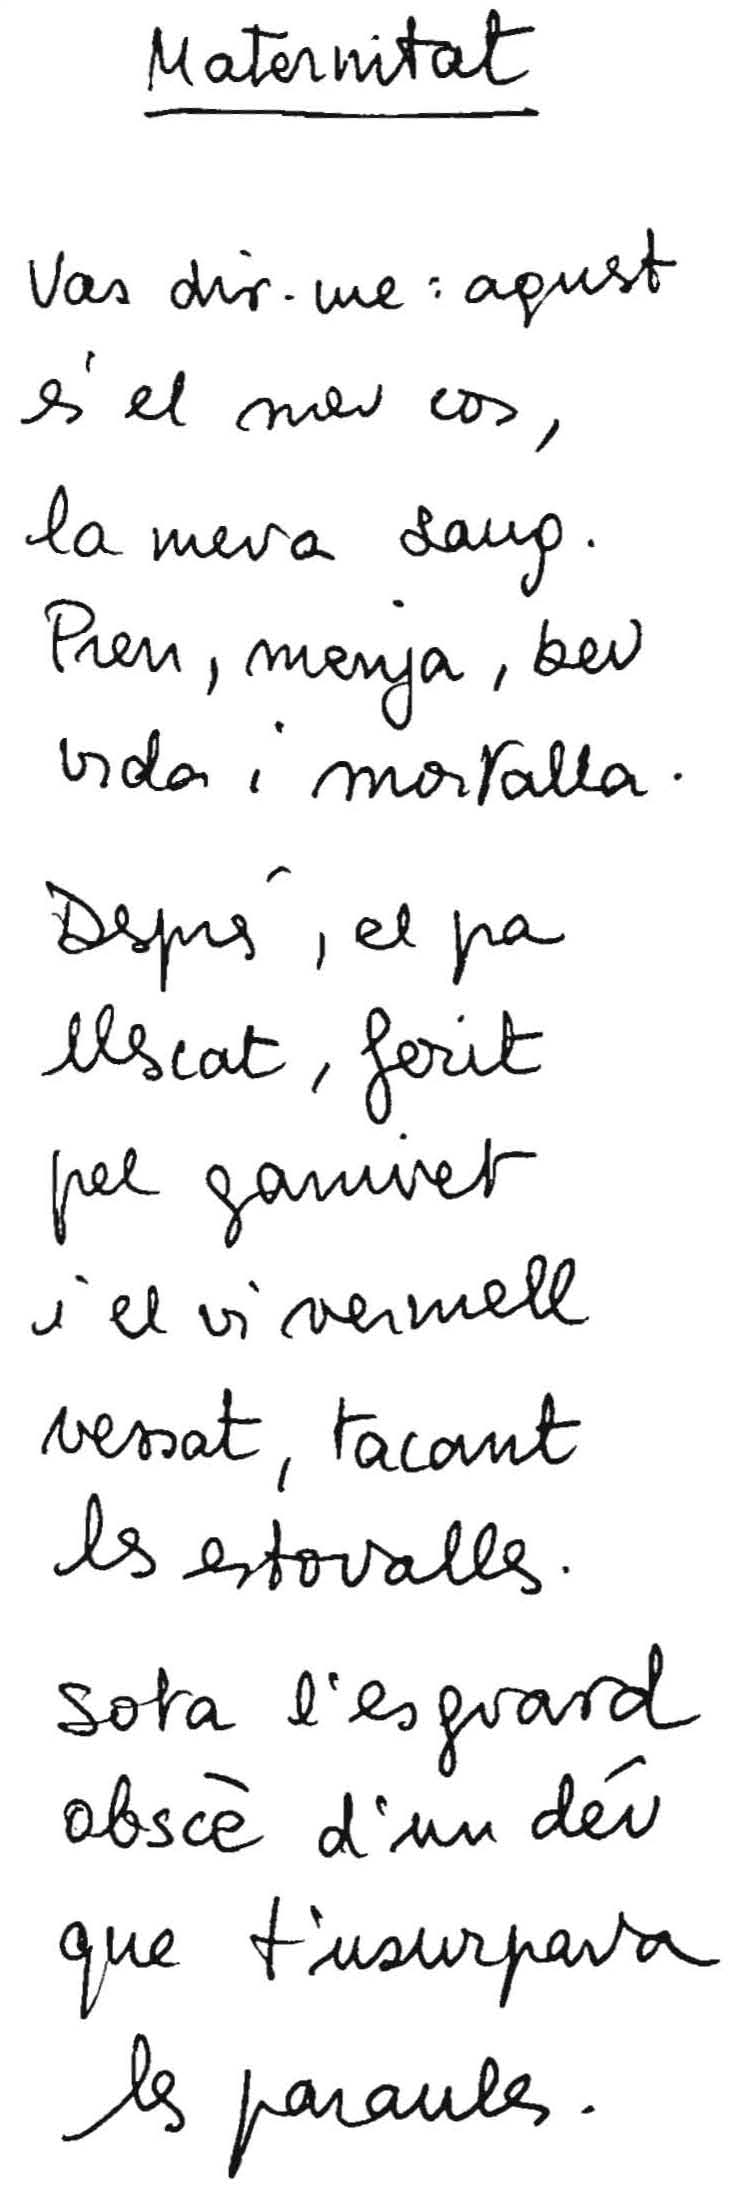 Maternitat
Vas dir-me: aquest
és el meu cos,
la meva sang.
Pren, menja, beu
vida i mortalla.
Després, el pa
llescat, ferit
pel ganivet
i el vi vermell
vessat, tacant
les estovalles.
Sota l'esguard
obscè d'un déu
que t'usurpava
les paraules.